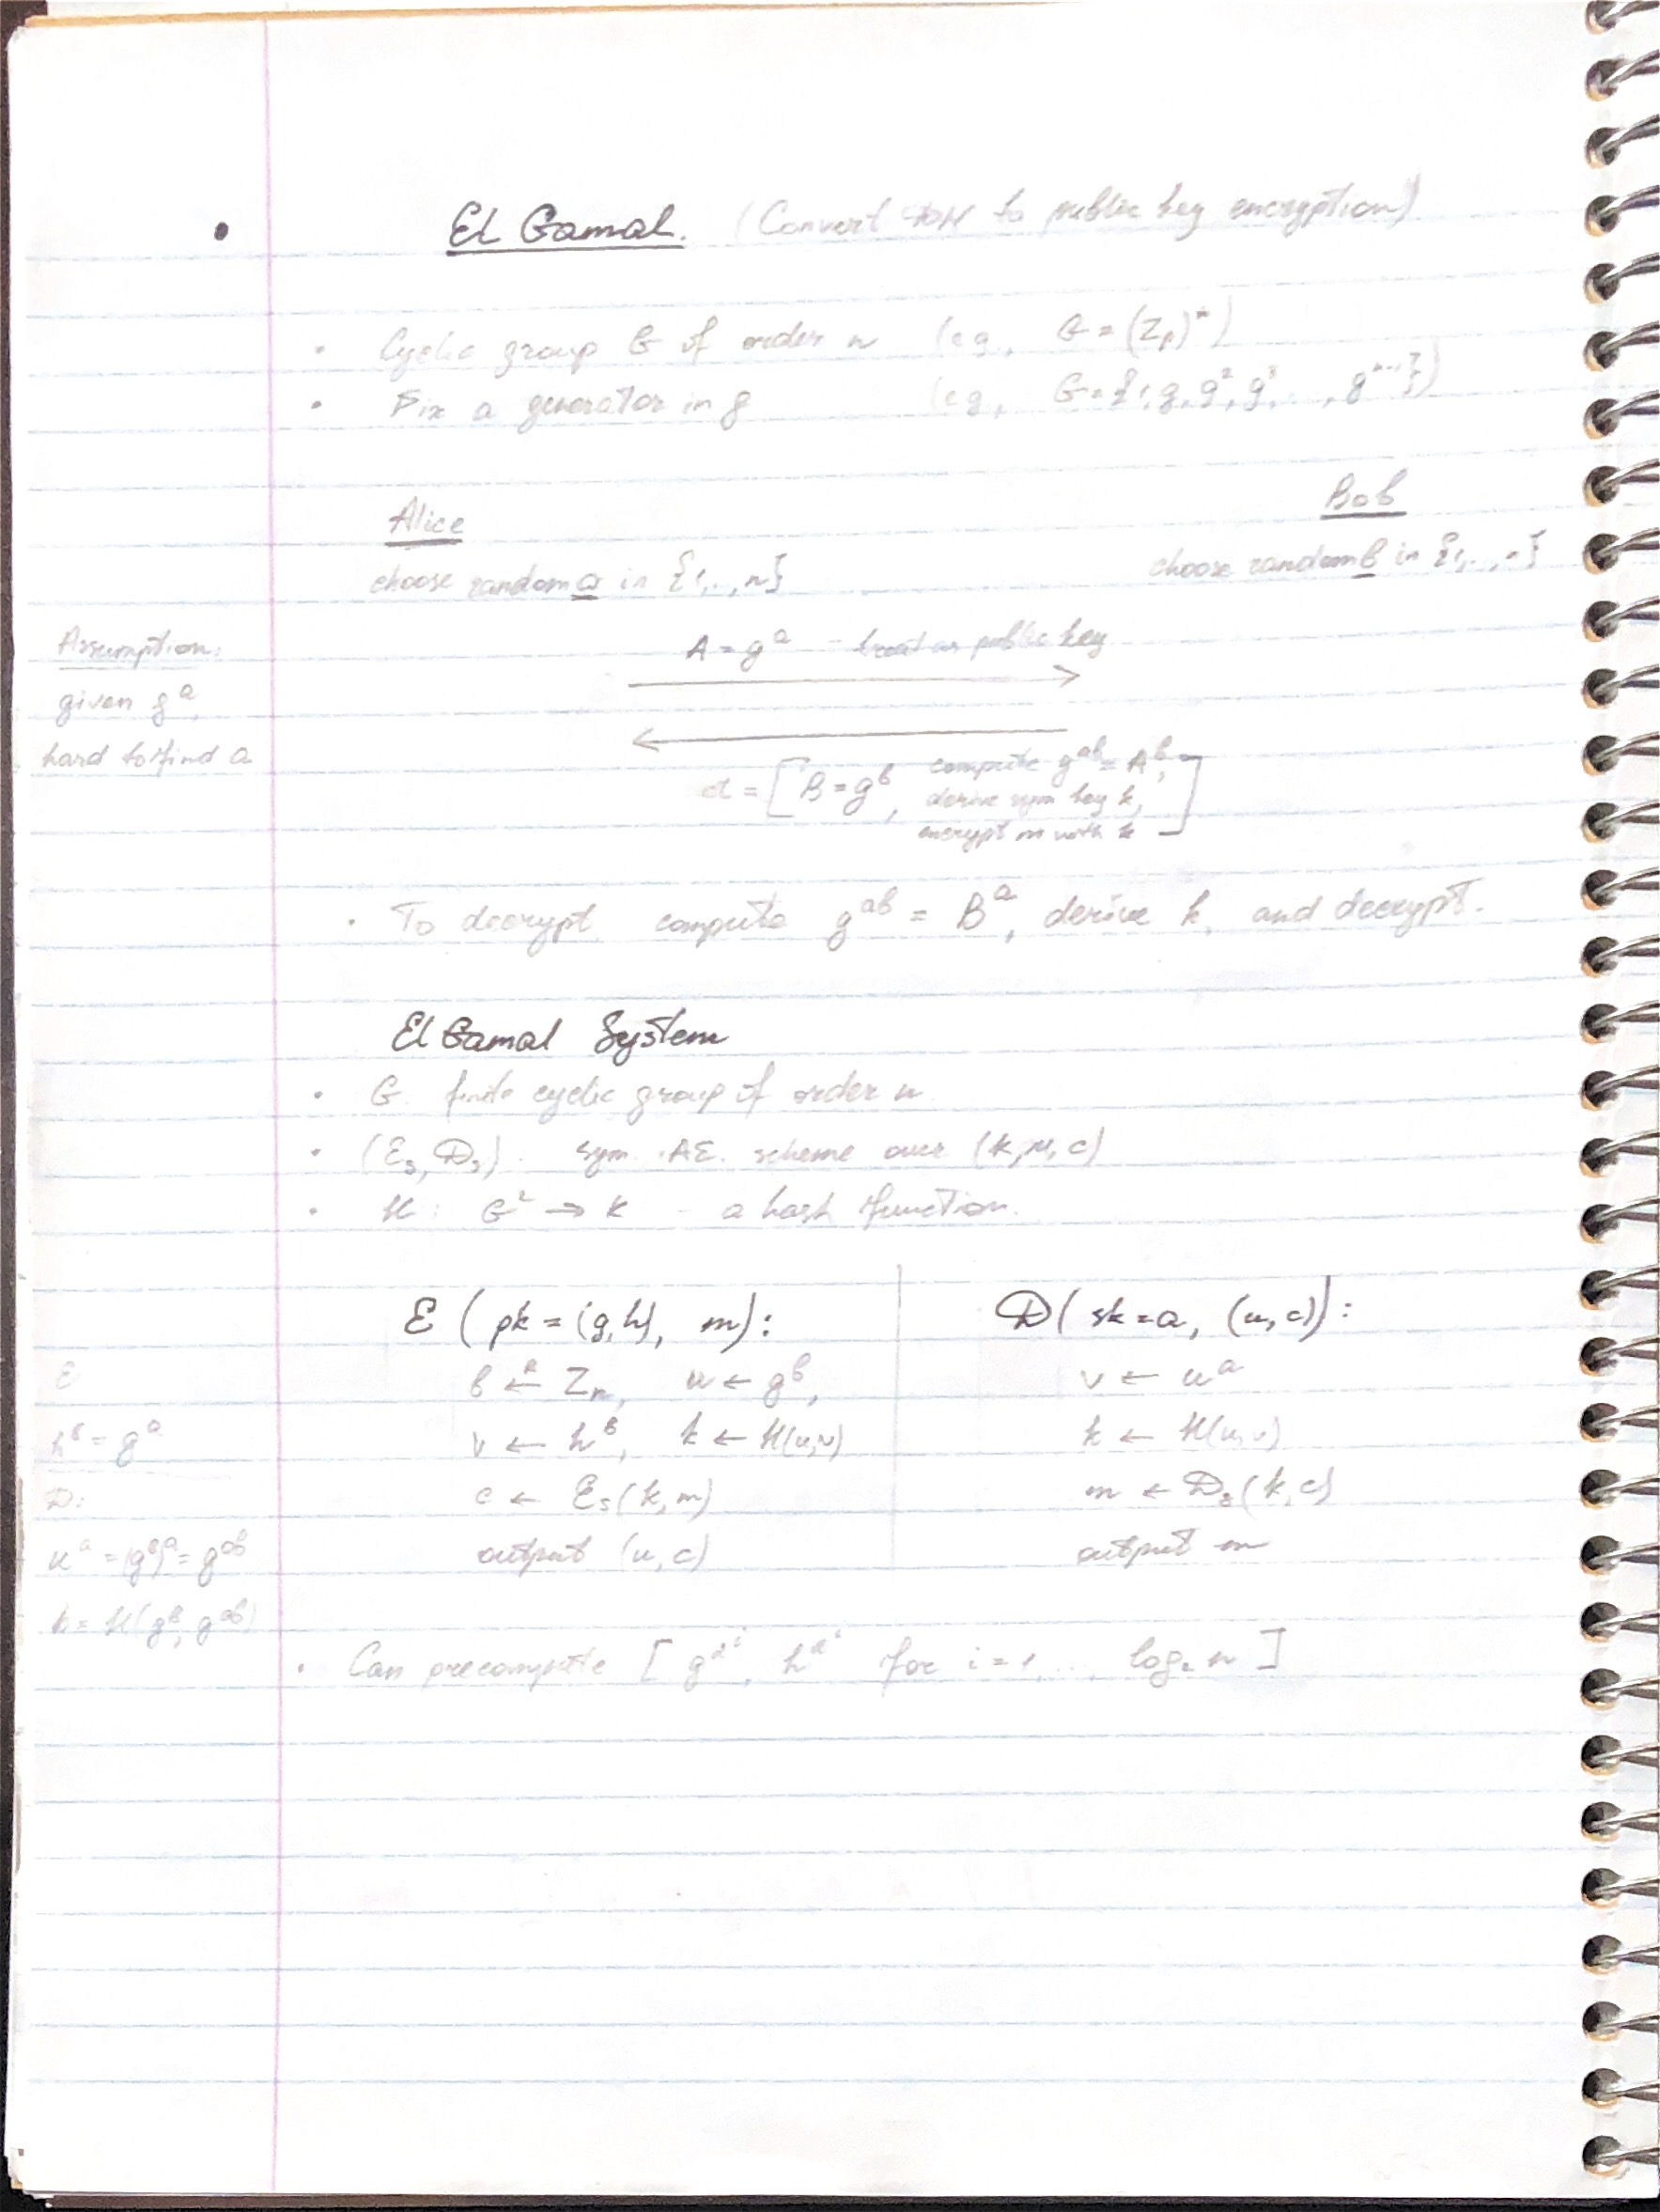 • El Gamal. (Convert DH to public key encryption)
• Cyclic group G of order n (eg, G = (Zp)*)
• Fix a generator in g (eg, G = {1, g, g², g³, .., gⁿ⁻¹})
Alice
Bob
choose random a in {1,..,n}
choose random b in {1,..,n}
Assumption:
given gᵃ,
hard to find a
A = gᵃ - treat as public key
ct = [B = gᵇ, compute gᵃᵇ = Aᵇ,
derive sym key k,
encrypt m with k]
• To decrypt, compute gᵃᵇ = Bᵃ, derive k, and decrypt.
El Gamal System
• G: finite cyclic group of order n
• (Es, Ds): sym. AE. scheme over (K, M, C)
• H: G² → K - a hash function.
E (pk = (g,h), m):
D(sk = a, (u,c)):
b ←ᴿ Zn, u ← gᵇ,
v ← uᵃ
v ← hᵇ, k ← H(u,v)
k ← H(u,v)
c ← Es(k,m)
m ← Ds(k,c)
output (u,c)
output m
E
hᵇ = gᵃ
D:
uᵃ = (gᵇ)ᵃ = gᵃᵇ
k = H(gᵇ, gᵃᵇ)
• Can precompute [ for i = 1 ... log₂ n ]